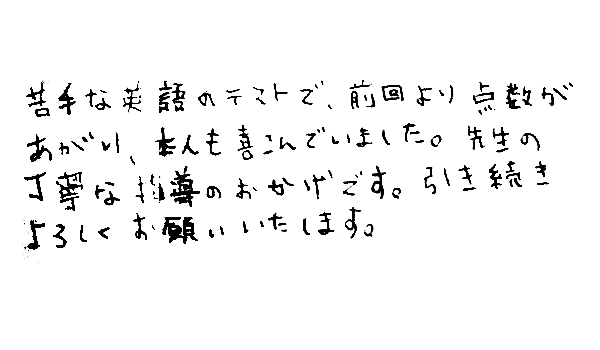 苦手な英語のテストで、前回より点数が
あがり、本人も喜こんでいました。先生の
丁寧な指導のおかげです。引き続き
よろしくお願いいたします。